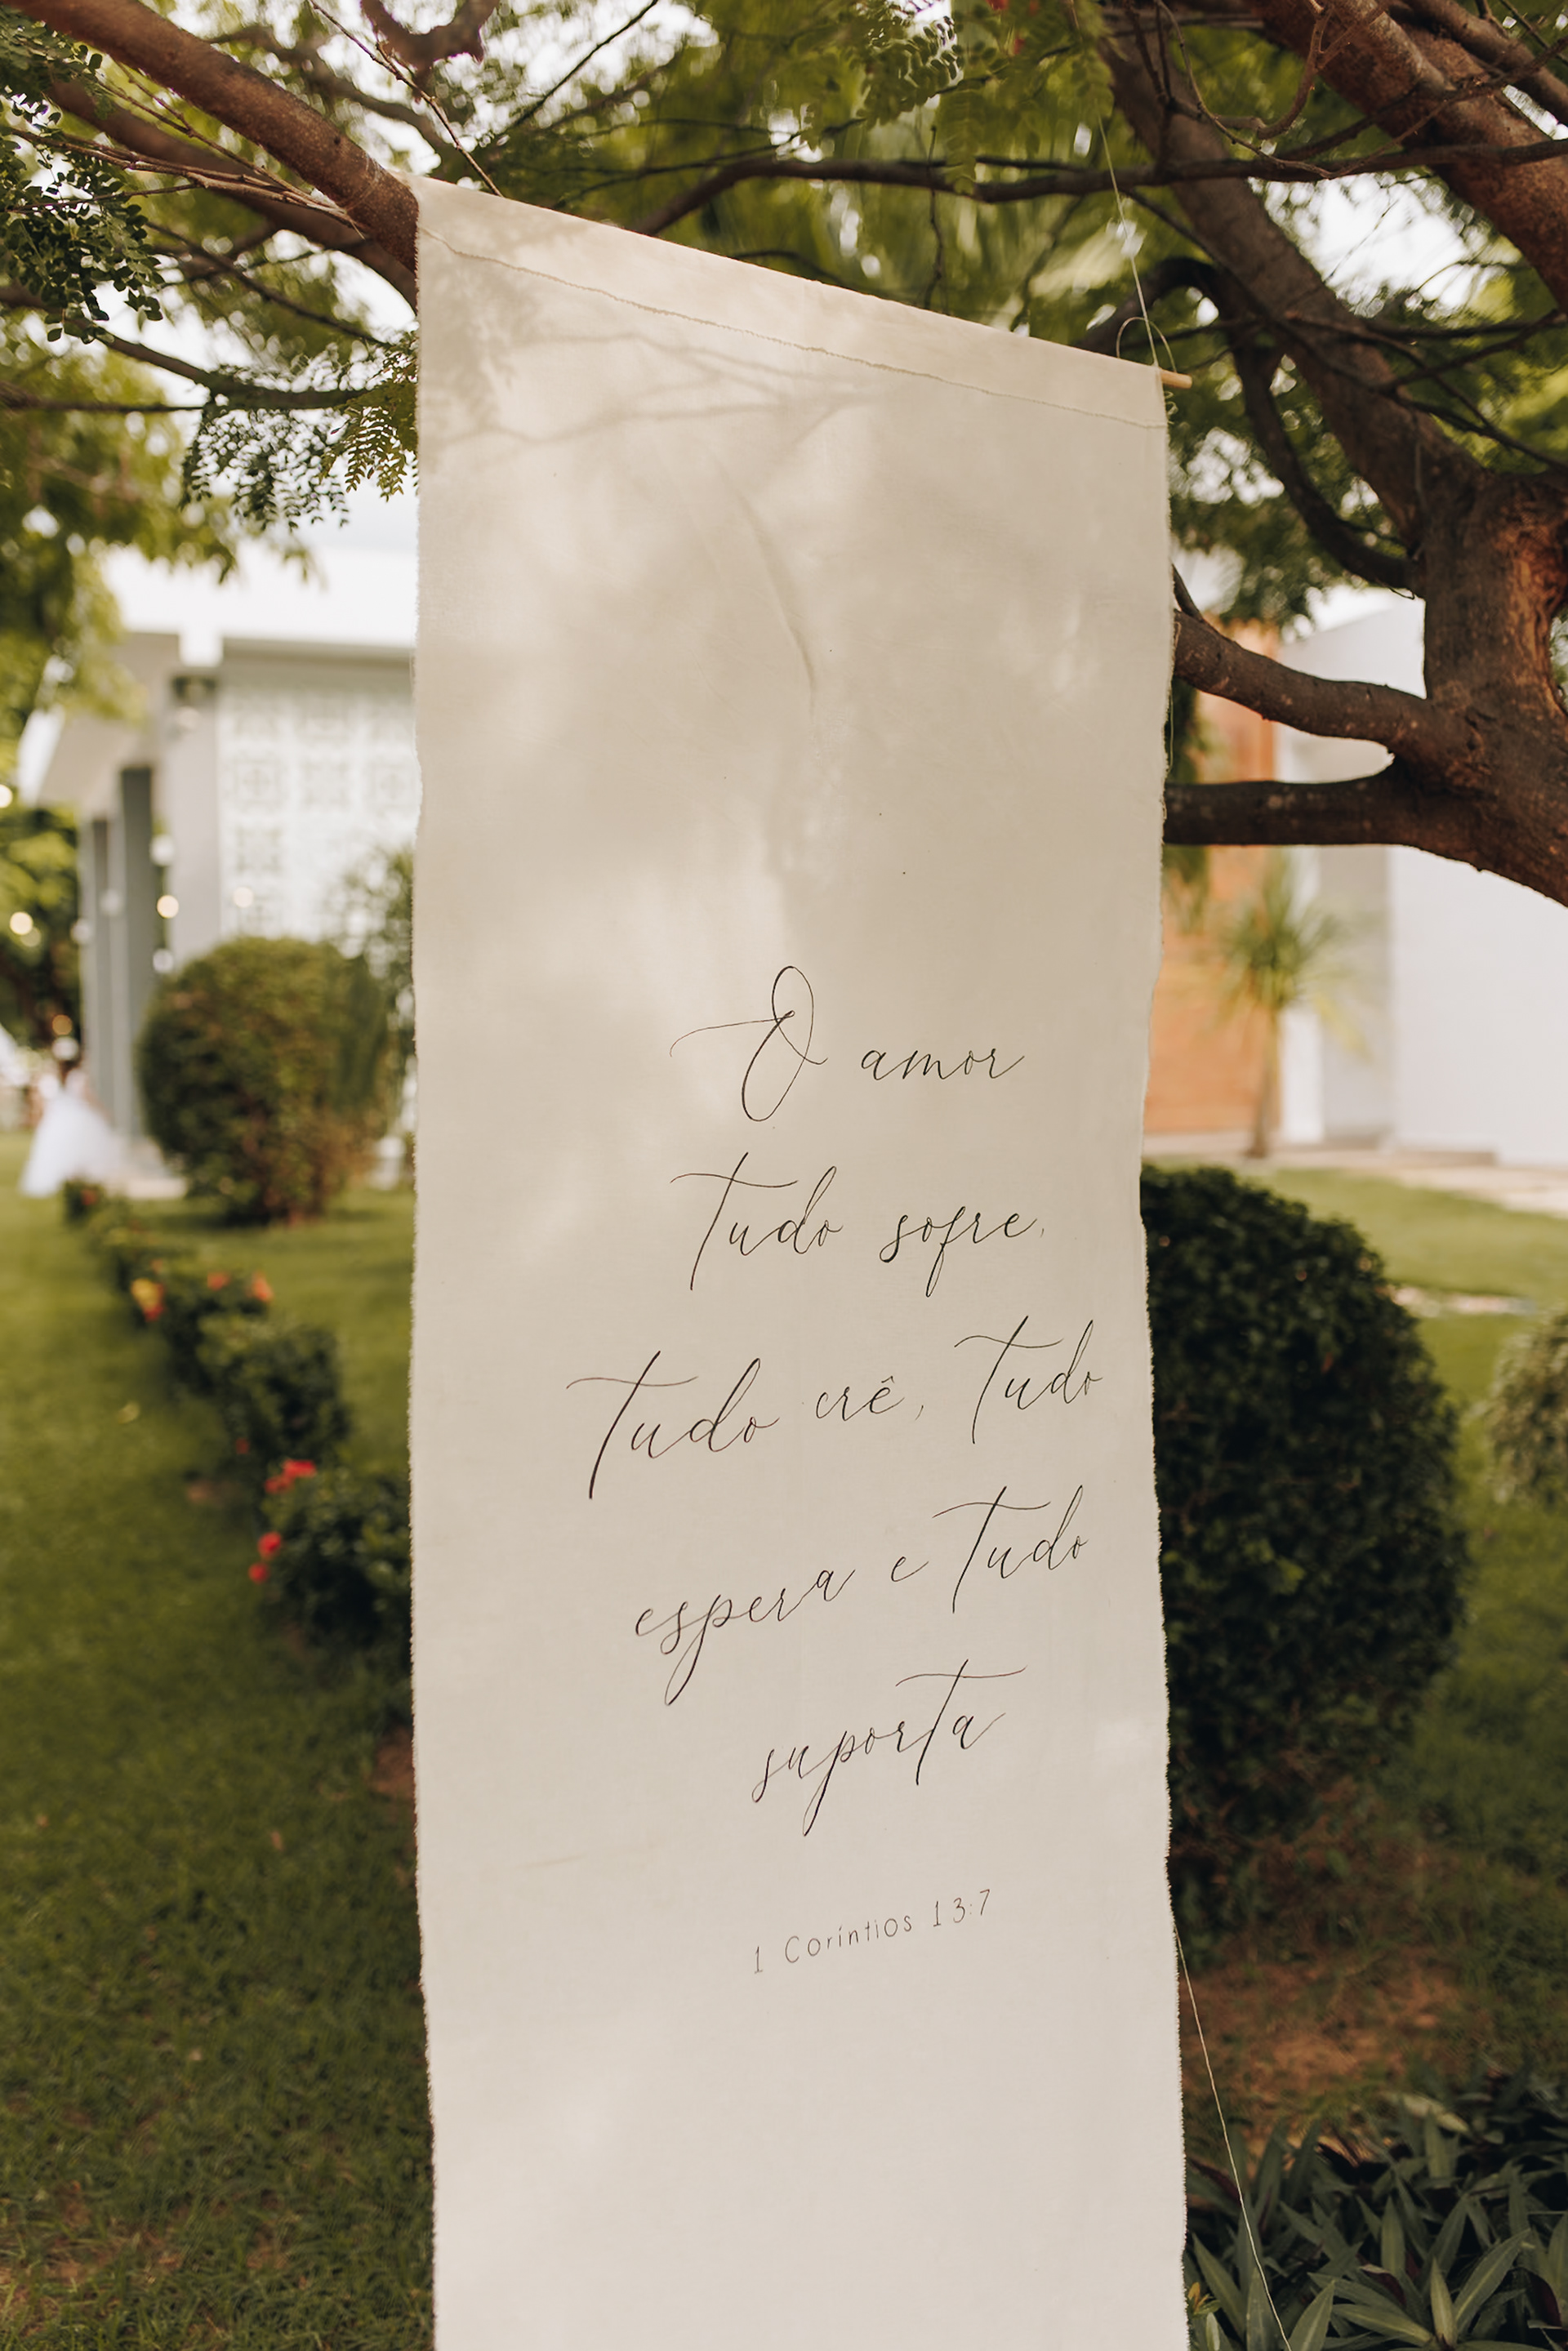 O amor
tudo sofre,
tudo crê, tudo
espera e tudo
suporta
1 Coríntios 13:7